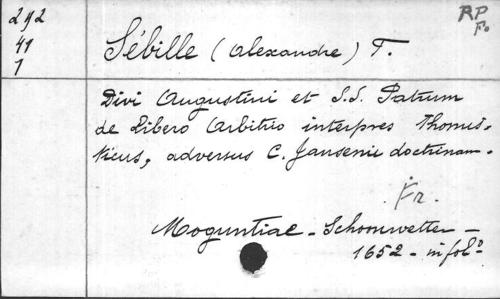 292
41
1
RP
Fo
Sébille (Alexandre) T.
Divi Augustini et S.S. Patrum
de Libero Arbitrio interpres Thomis-
ticus, adversus C. Jansenii doctrinam.
Fr.
Moguntiae - Schonwetter -
1652 - in folº